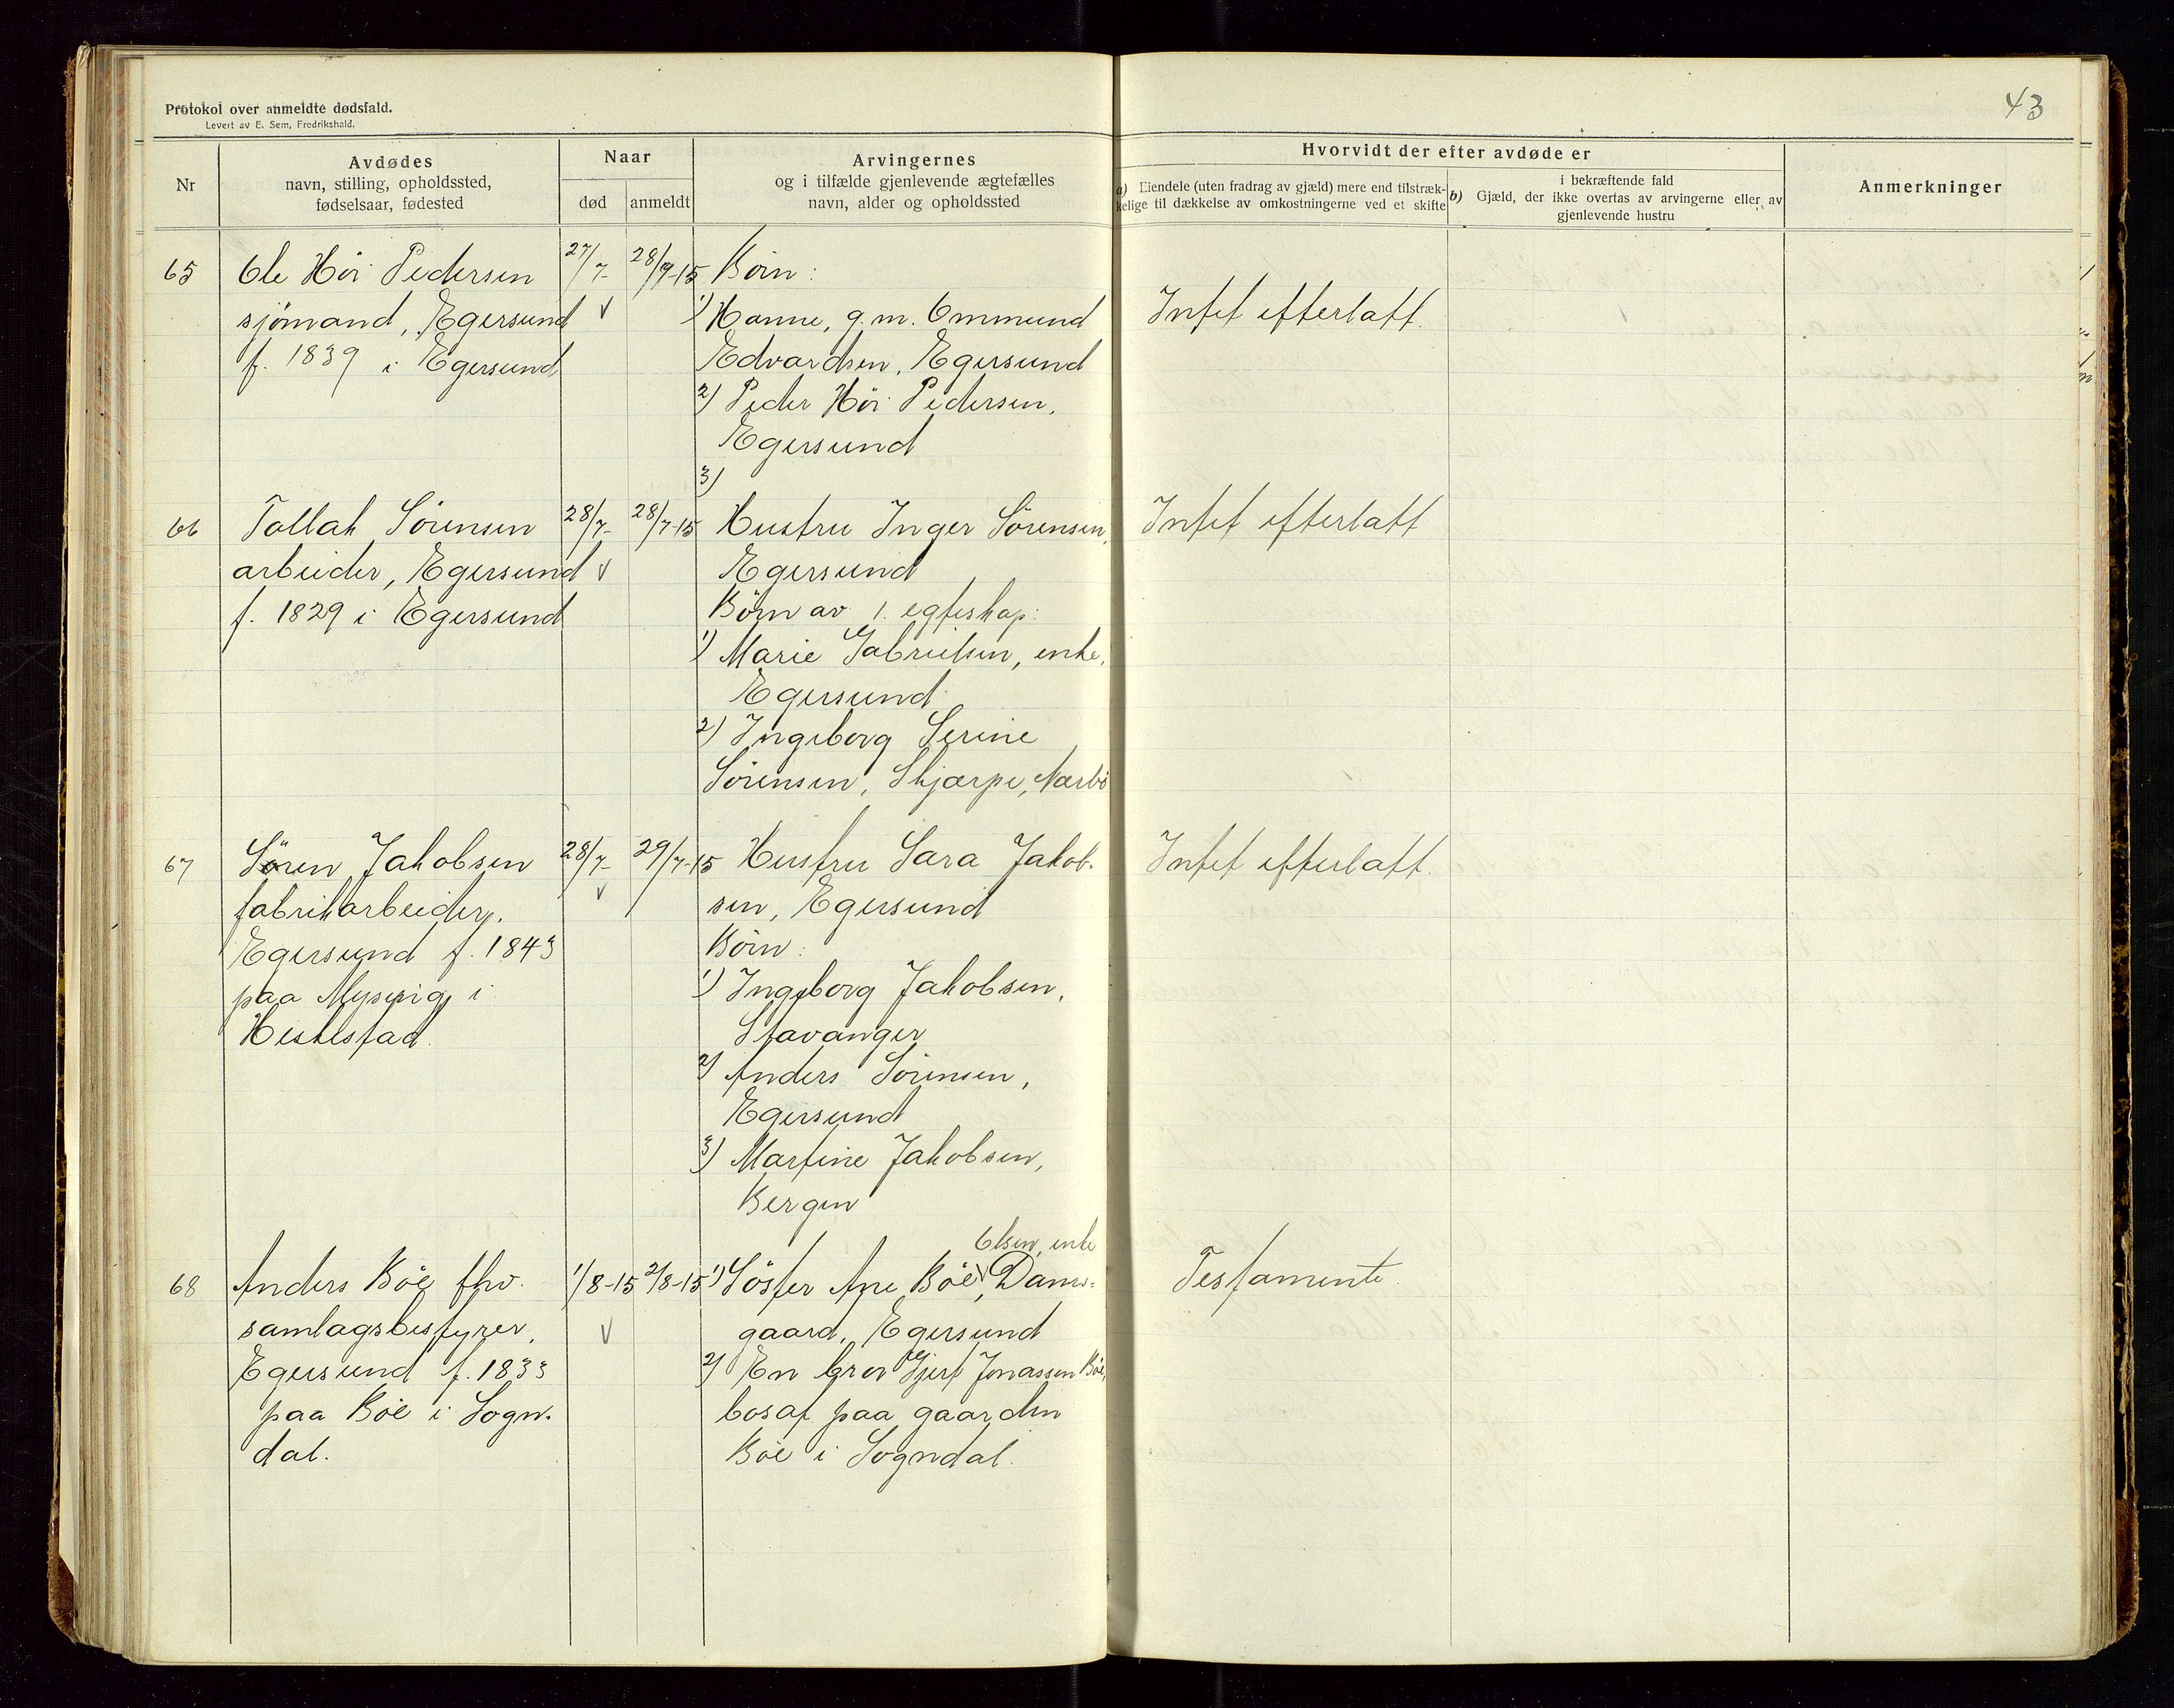 Protokol over anmeldte dødsfald.
Levert av E. Sem, Fredrikshald.
43
Nr
Avdødes
navn, stilling, opholdssted,
fødselsaar, fødested
Naar
død
anmeldt
Arvingernes
og i tilfælde gjenlevende ægtefælles
navn, alder og opholdssted
Hvorvidt der efter avdøde er
a) Eiendele (uten fradrag av gjæld) mere end tilstræk-
kelige til dækkelse av omkostningerne ved et skifte
i bekræftende fald
b) Gjæld, der ikke overtas av arvingerne eller av
gjenlevende hustru
Anmerkninger
65
Ole Hör Pedersen
sjömand, Egersund
f. 1839 i Egersund
27/7-
28/7-15
Börn:
1) Hanne, g.m. Ommund
Edvardsen, Egersund
2) Peder Hör Pedersen,
Egersund
3)
Intet efterlatt.
66
Tollak Sörensen
arbeider, Egersund
f. 1829 i Egersund
28/7-
28/7-15
Hustru Inger Sörensen,
Egersund
Börn av 1. egteskap:
1) Marie Gabrielsen, enke,
Egersund
2) Ingeborg Serine
Sörensen, Skjærpe, Nærbö
Intet efterlatt
67
Sören Jakobsen
fabrikarbeider,
Egersund f. 1843
paa i
Heskestad.
28/7-
29/7-15
Hustru Sara Jakob-
sen, Egersund
Börn:
1) Ingeborg Jakobsen,
Stavanger
2) Anders Sörensen,
Egersund
3) Martine Jakobsen,
Bergen
Intet efterlatt.
68
Anders Böe fhv.
samlagsbestyrer,
Egersund f. 1833
paa Böe i Sogn-
dal.
1/8-15
2/8-15
Olsen, enke
1) Söster Ane Böe, Dams-
gaard, Egersund
2) En bror Gjert Jonassen Böe,
bosat paa gaarden
Böe i Sogndal.
Testamente.